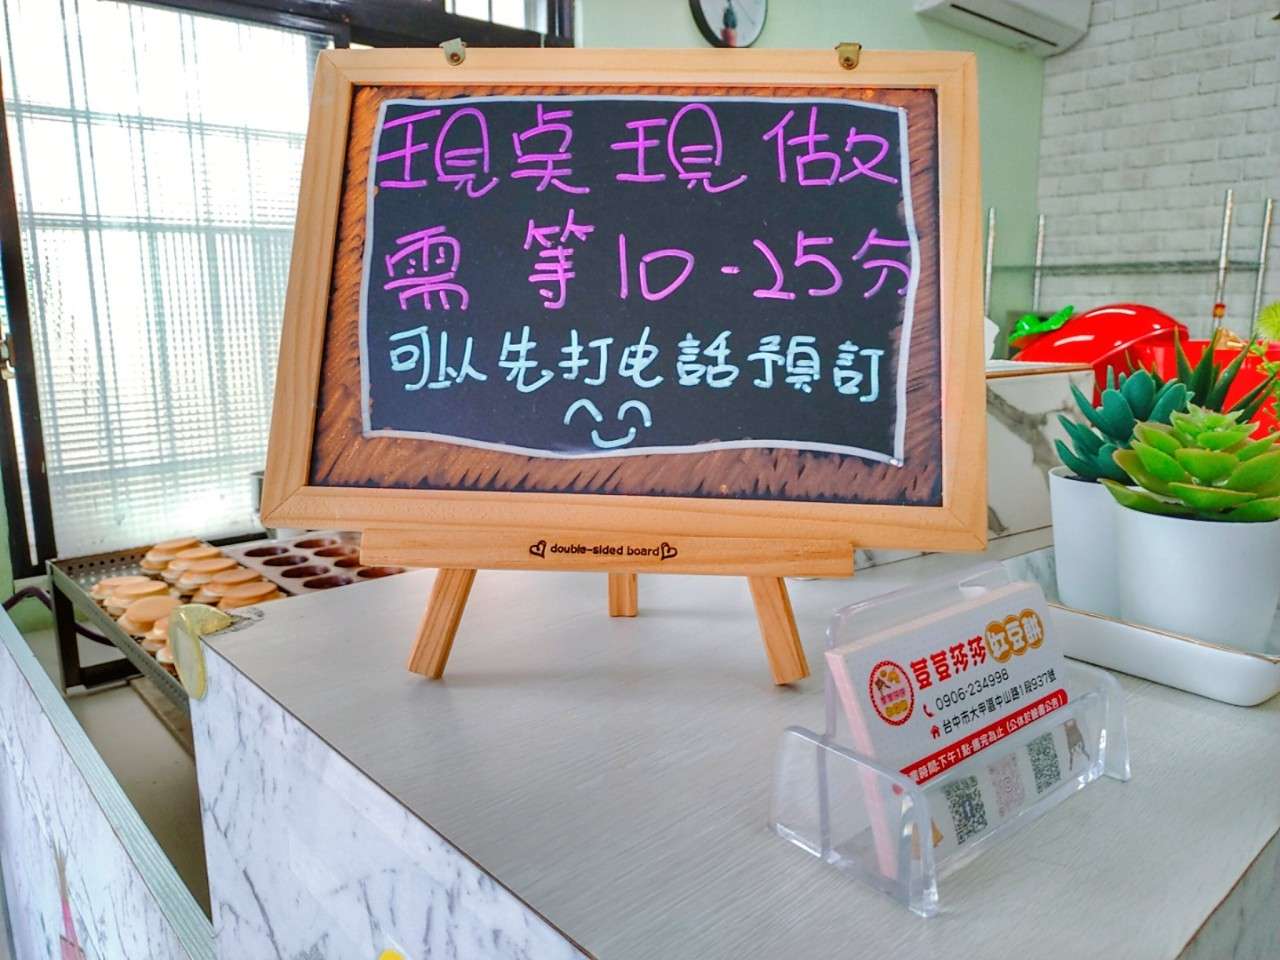 現点現做
需等10-25分
可以先打电話預訂
double-sided board
荳荳莎莎紅豆餅
0906-234998
台中市大甲區中山路1段937號
業時間:下午1點-售完為止 (公休於臉書公告)